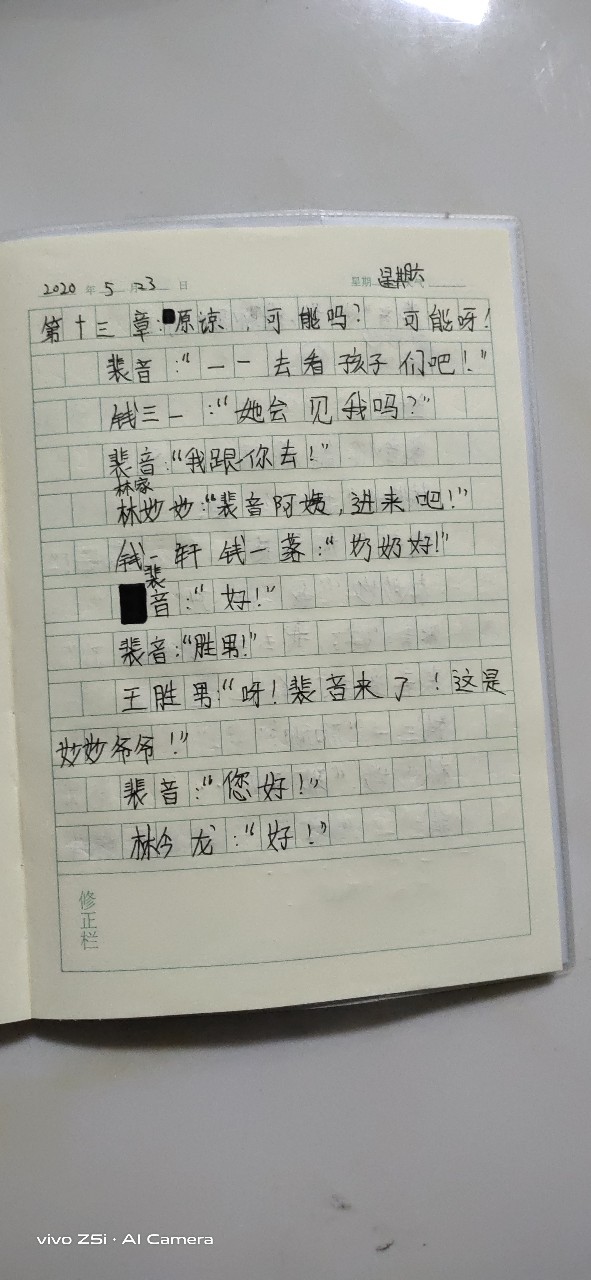 2020 年 5 月 23 日 星期 星期六
第十三章:原谅,可能吗? 可能呀!
裴音:“一一去看孩子们吧!”
钱三一:“她会见我吗?”
裴音:“我跟你去!”
林家
林妙妙:“裴音阿姨,进来吧!”
钱一轩 钱一落:“奶奶好!”
裴音:“好!”
裴音:“胜男!”
王胜男:“呀!裴音来了!这是
妙妙爷爷!”
裴音:“您好!”
林今龙:“好!”
修正栏
vivo Z5i · AI Camera